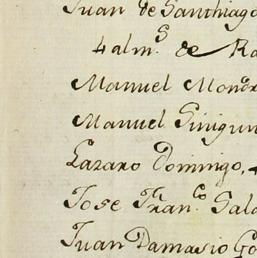 Juan de Santhiago
4 alm.s de Ra
Manuel Mond
Manuel Sinigun
Lazaro Domingo,
Jose Fran.co Sala
Juan Damasio Go